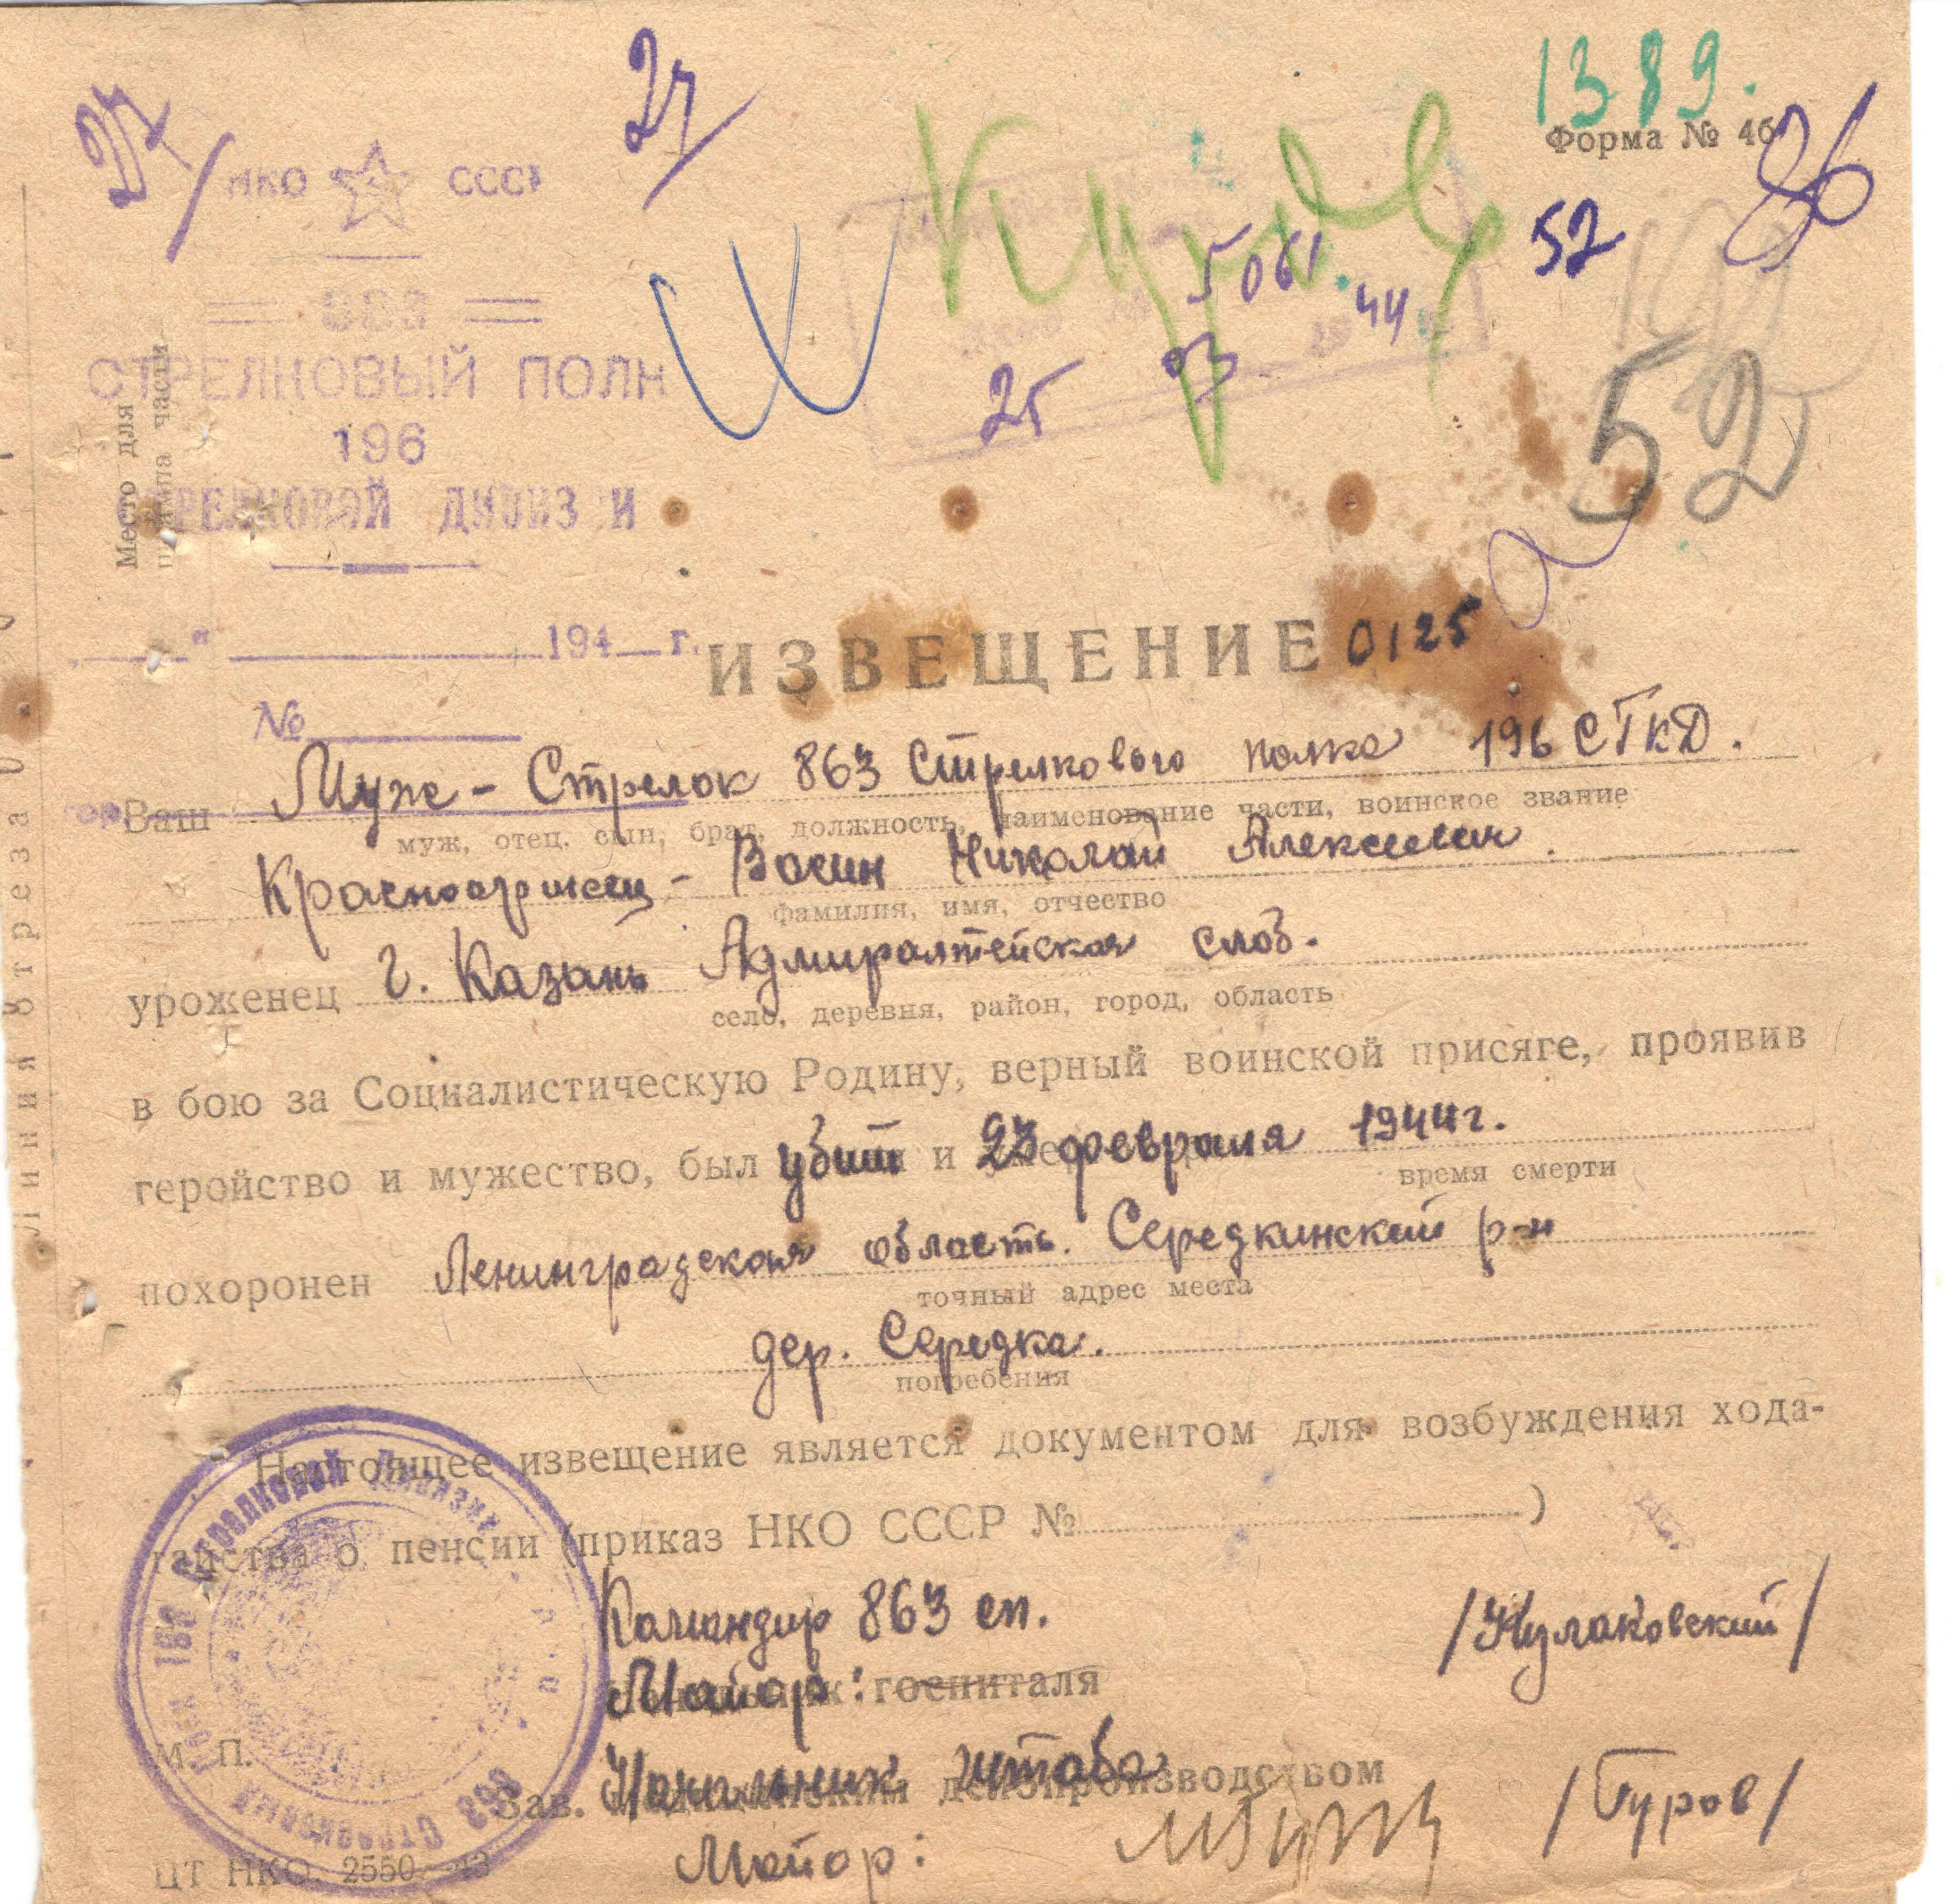 1389.
Форма № 4б
27/
27/
86
52
НКО СССР
5061.
44
863
25 03
СТРЕЛКОВЫЙ ПОЛК
52
196
СТРЕЛКОВОЙ ДИВИЗИИ
Место для
штампа части
Линия отреза
„ “ 194 г.
ИЗВЕЩЕНИЕ 0125
№
Ваш Муж - Стрелок 863 Стрелкового полка 196 СТКД.
муж, отец, сын, брат, должность, наименование части, воинское звание
Красноармеец - Васин Николай Алексеевич.
фамилия, имя, отчество
уроженец г. Казань Адмиралтейская слоб.
село, деревня, район, город, область
в бою за Социалистическую Родину, верный воинской присяге, проявив
геройство и мужество, был убит и 23 февраля 1944 г.
время смерти
похоронен Ленинградская область. Середкинский р-н
точный адрес места
дер. Середка.
погребения
Настоящее извещение является документом для возбуждения хода-
тайства о пенсии (приказ НКО СССР № )
Командир 863 сп.
/Кулаковский/
Майор: госпиталя
М. П.
Начальник штаба
Зав. делопроизводством
/Гуров/
Майор:
ЦТ НКО. 2550—43
863 Стрелковый полк 196 Стрелковой Дивизии